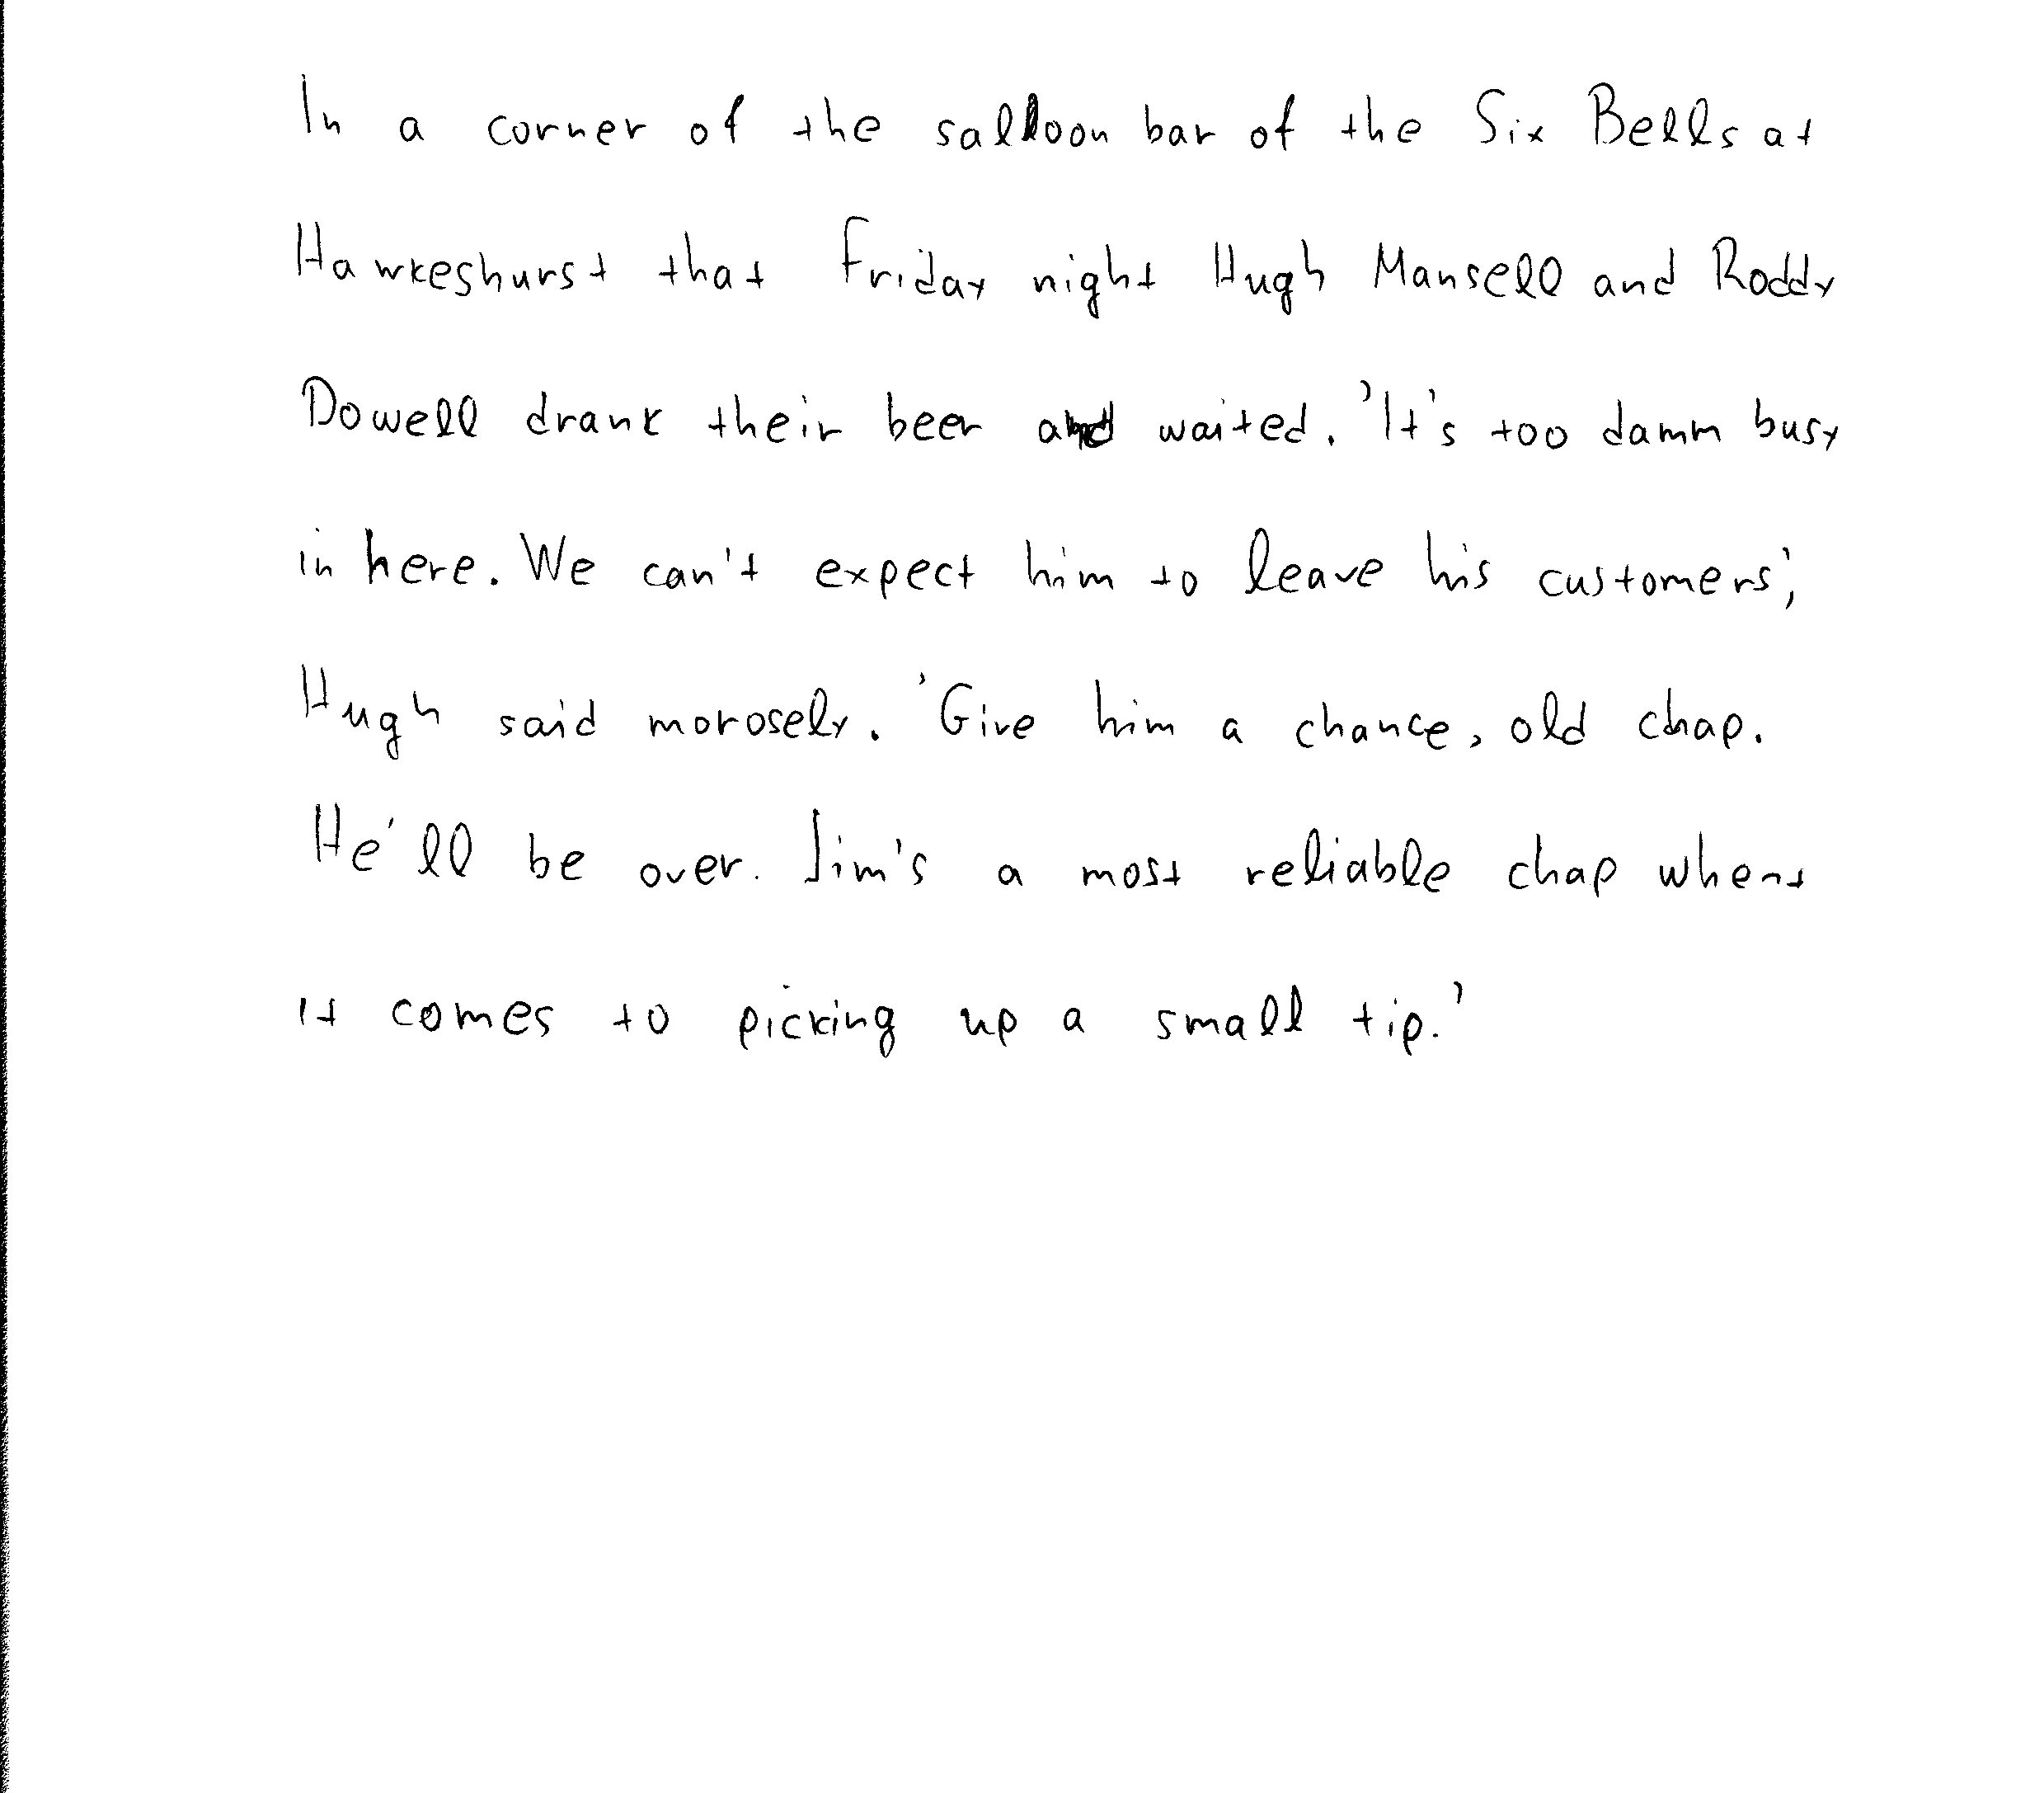 In a corner of the salloon bar of the Six Bells at
Hawkeshurst that Friday night Hugh Mansell and Roddy
Dowell drank their beer and waited. 'It's too damm busy
in here. We can't expect him to leave his customers',
Hugh said morosely. 'Give him a chance, old chap.
He'll be over. Jim's a most reliable chap whent
it comes to picking up a small tip.'